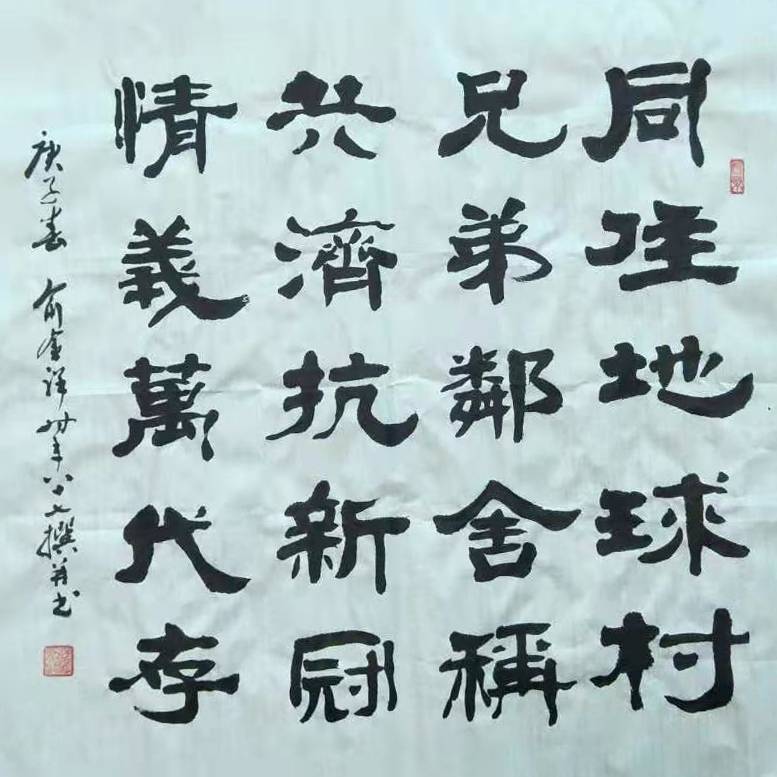 同住地球村
兄弟鄰舍稱
共濟抗新冠
情義萬代存
庚子春 俞金祥卅年八十七撰并书